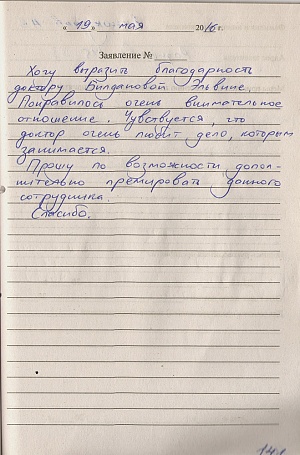 « 19 » мая 2016 г.
Заявление №
Хочу выразить благодарность
доктору Билдановой Эльвине.
Понравилось очень внимательное
отношение. Чувствуется, что
доктор очень любит дело, которым
занимается.
Прошу по возможности допол-
нительно премировать данного
сотрудника.
Спасибо.